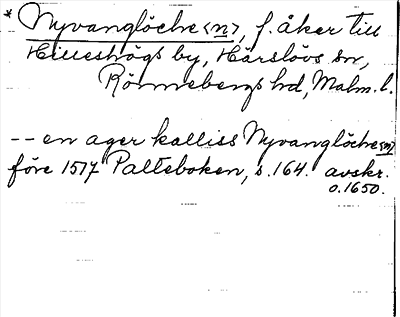 * Nyvanglöche <n>, f. åker till
Hilleshögs by, Härslövs sn,
Rönnebergs hd, Malm. l.
-- en ager kalliss Nyvanglöche<n>
före 1517 Palteboken, s. 164. avskr.
o. 1650.